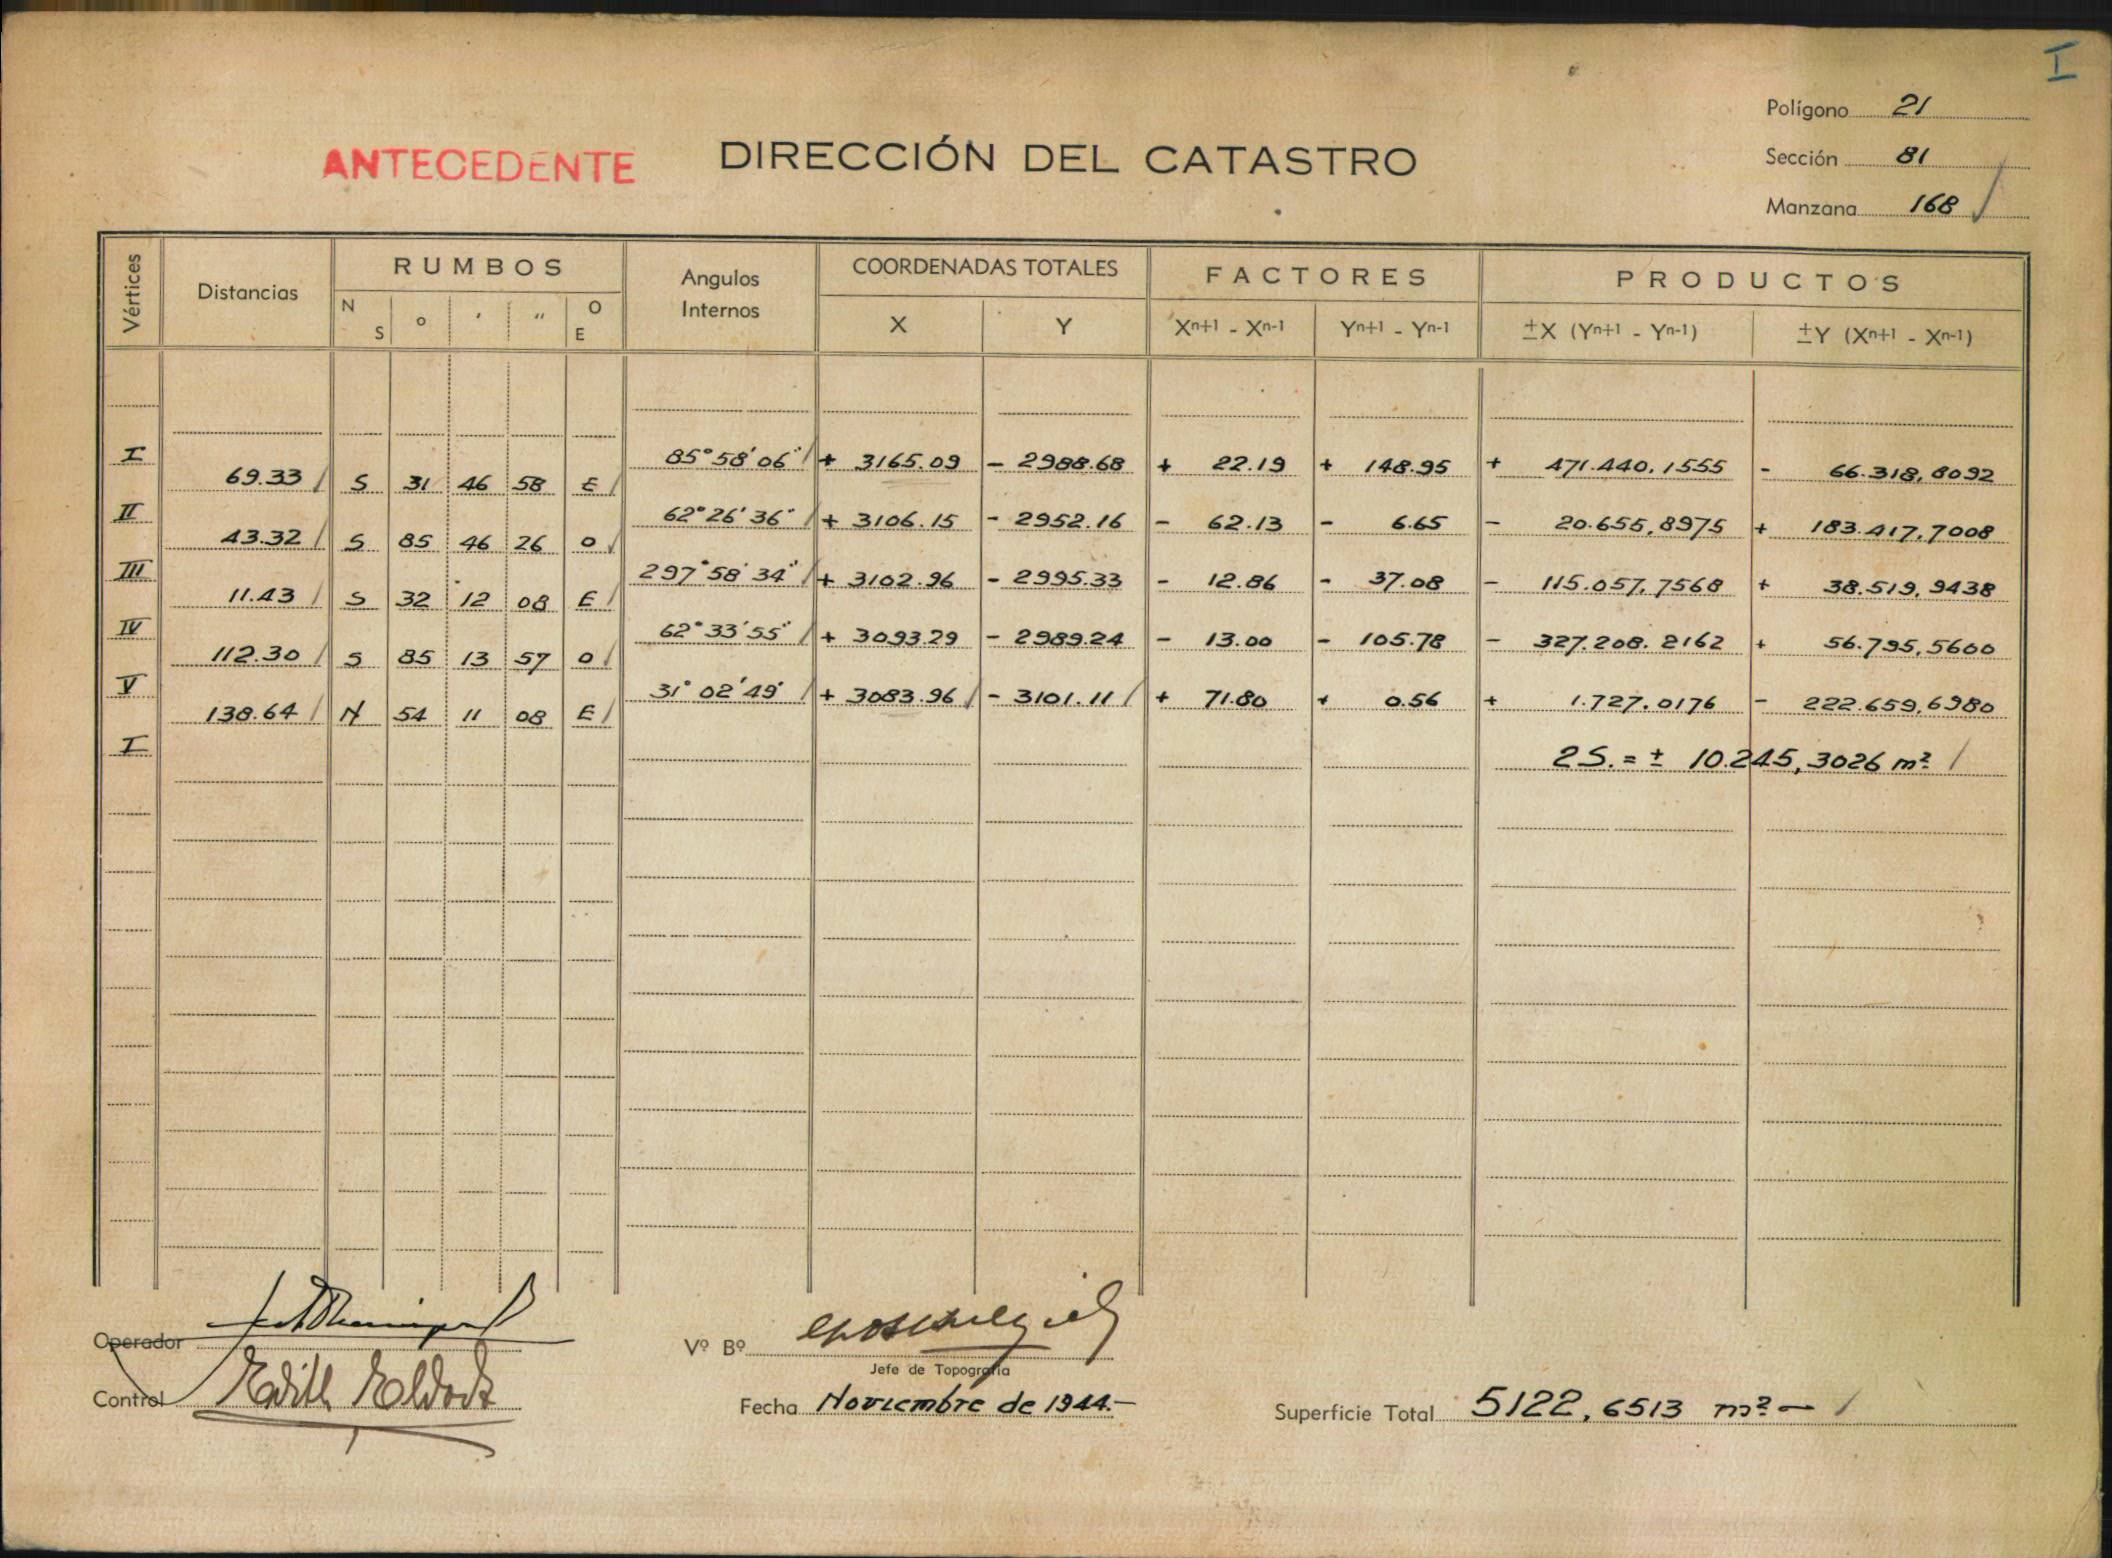 I
Polígono 21
ANTECEDENTE DIRECCIÓN DEL CATASTRO
Sección 81
Manzana 168
Vértices Distancias RUMBOS Angulos Internos COORDENADAS TOTALES FACTORES PRODUCTOS
N S o ' " O E X Y Xn+1 - Xn-1 Yn+1 - Yn-1 ±X (Yn+1 - Yn-1) ±Y (Xn+1 - Xn-1)
I 85° 58' 06" + 3165.09 - 2988.68 + 22.19 + 148.95 + 471.440,1555 - 66.318,8092
69.33 S 31 46 58 E
II 62° 26' 36" + 3106.15 - 2952.16 - 62.13 - 6.65 - 20.655,8975 + 183.417,7008
43.32 S 85 46 26 O
III 297° 58' 34" + 3102.96 - 2995.33 - 12.86 - 37.08 - 115.057,7568 + 38.519,9438
11.43 S 32 12 08 E
IV 62° 33' 55" + 3093.29 - 2989.24 - 13.00 - 105.78 - 327.208.2162 + 56.795,5600
112.30 S 85 13 57 O
V 31° 02' 49" + 3083.96 - 3101.11 + 71.80 + 0.56 + 1.727,0176 - 222.659,6980
138.64 N 54 11 08 E
I
2S. = ± 10.245,3026 m²
Operador
Vº Bº
Jefe de Topografía
Control Edith
Fecha Noviembre de 1944.-
Superficie Total 5122,6513 m²-